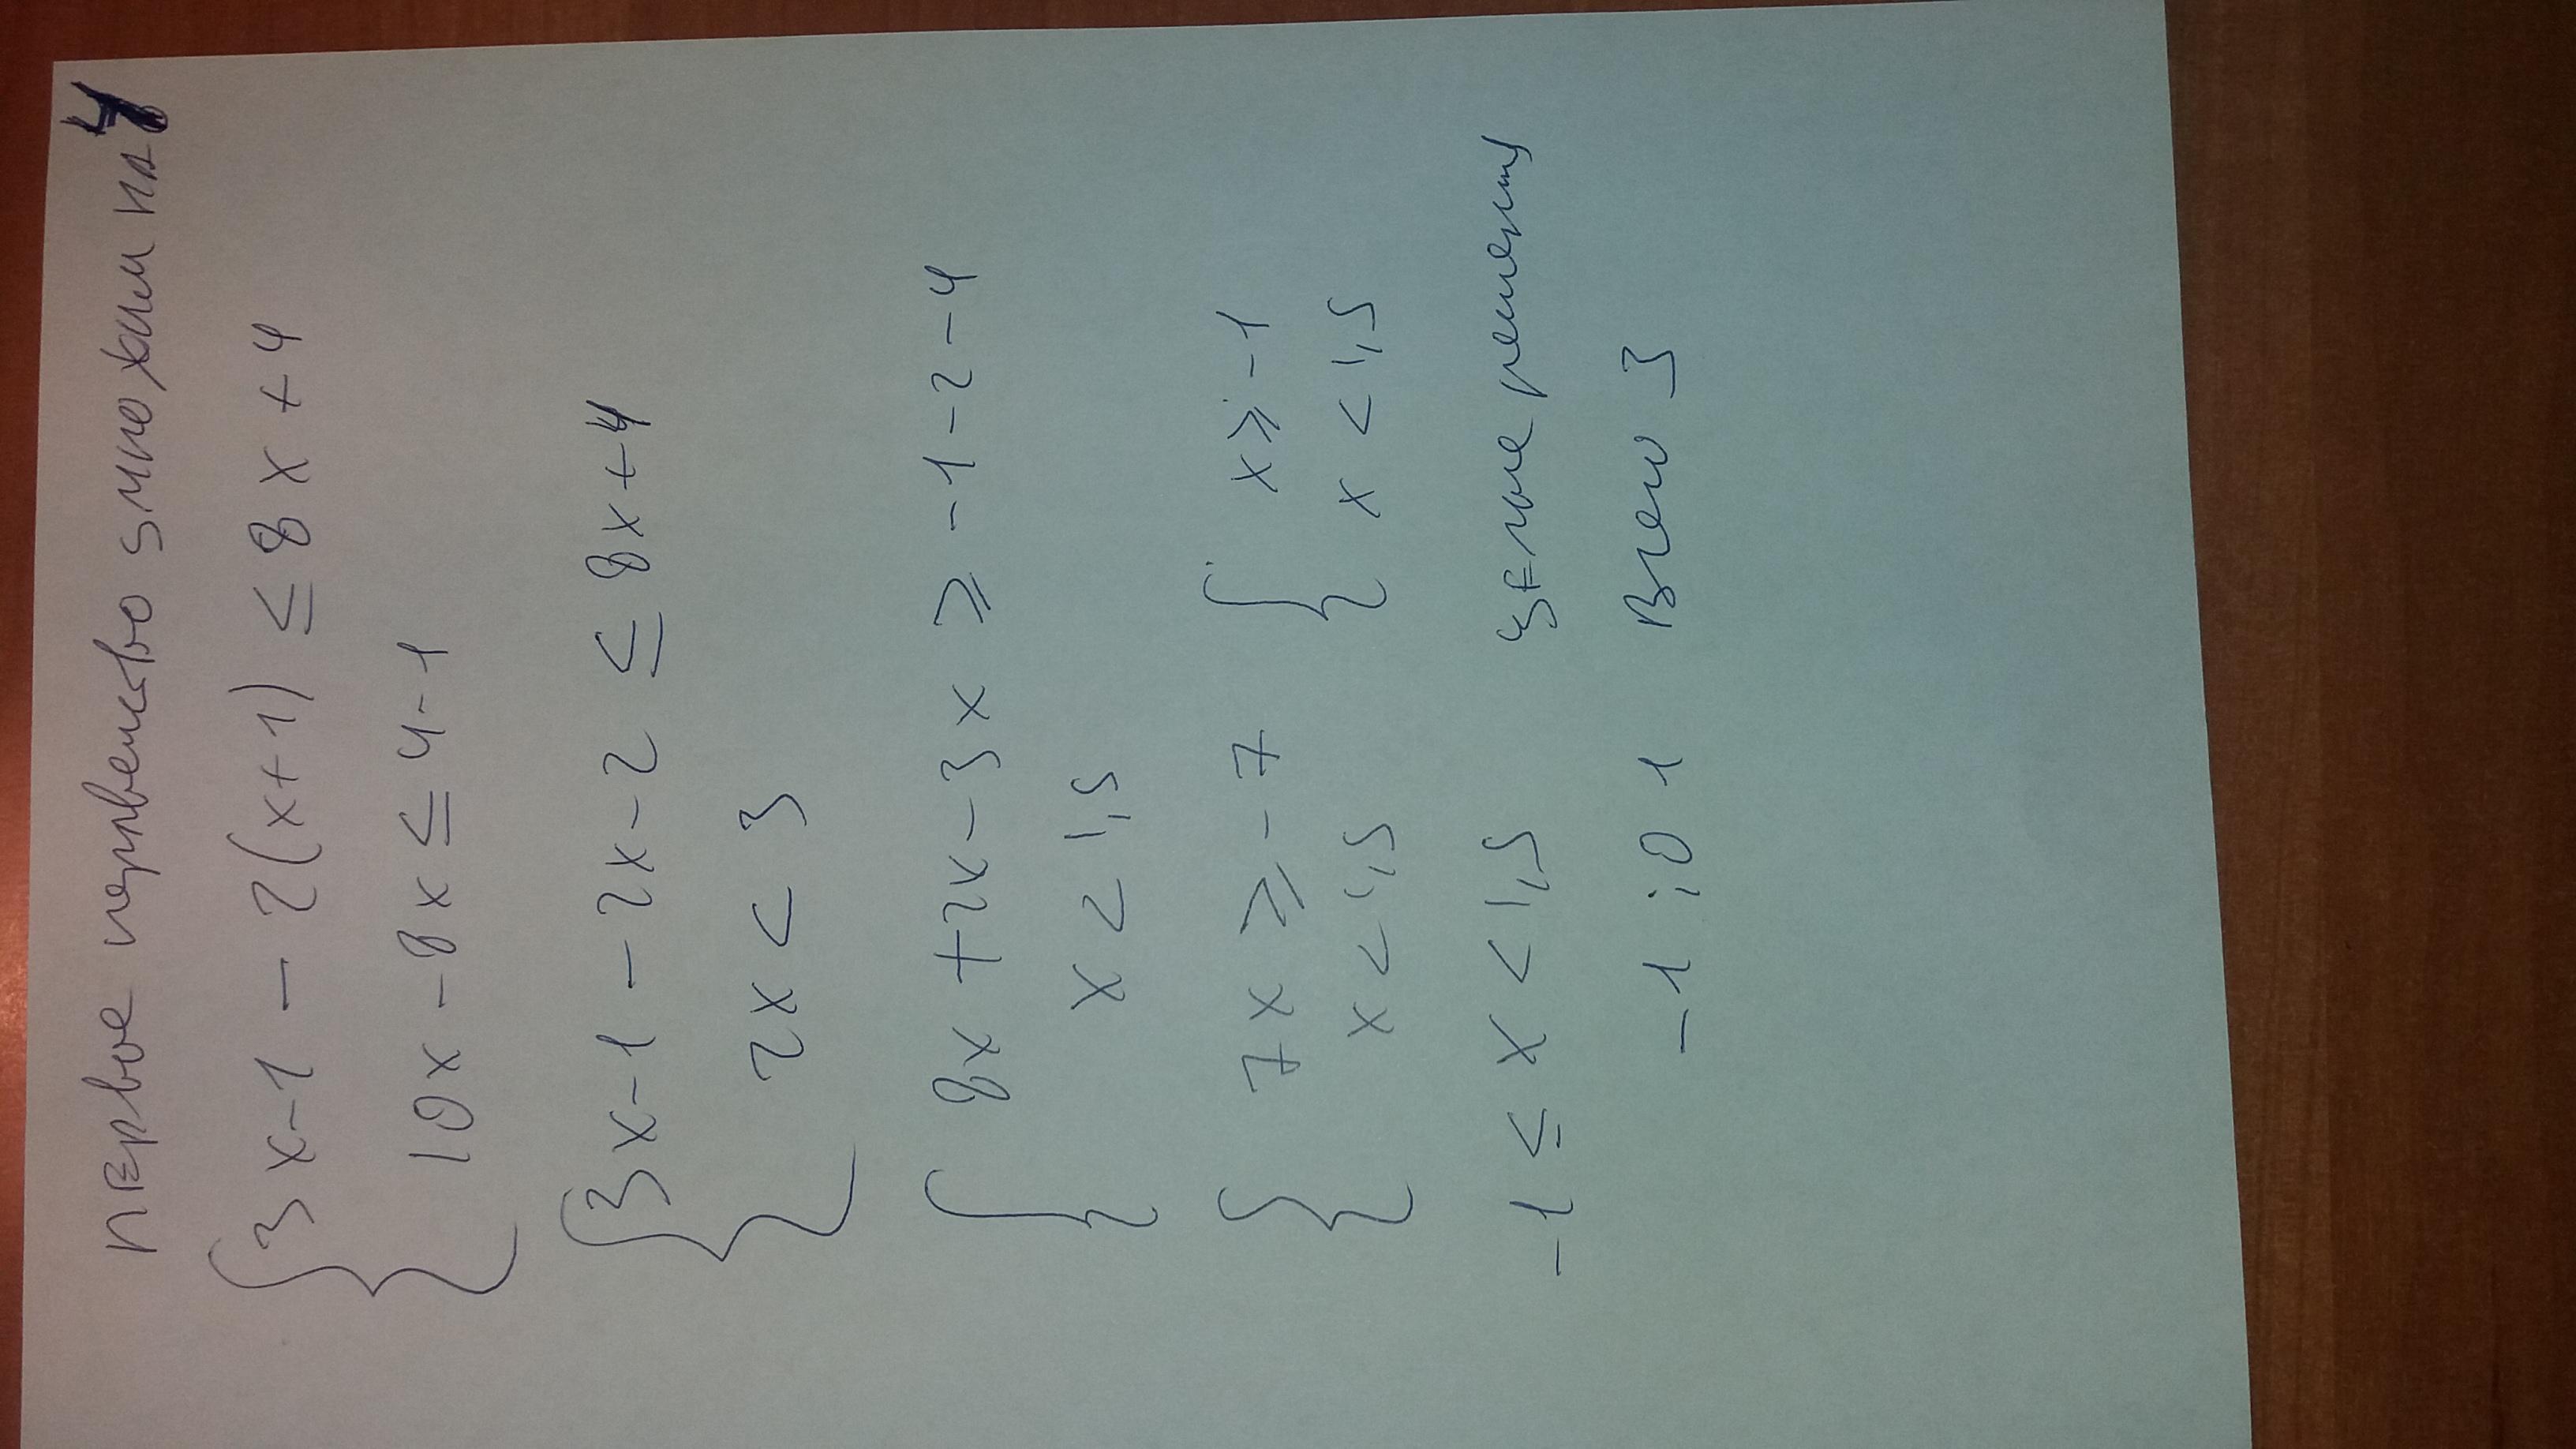 первое неравенство умножим на 4
{ 3x-1 - 2(x+1) ≤ 8x+4
10x - 8x ≤ 4-1
{ 3x-1 - 2x-2 ≤ 8x+4
2x < 3
{ 8x+2x-3x ⩾ -1-2-4
x < 1,5
{ 7x ⩾ -7 { x ⩾ -1
x < 1,5 x < 1,5
-1 ≤ x < 1,5 целые решения
-1 ; 0 1 Всего 3